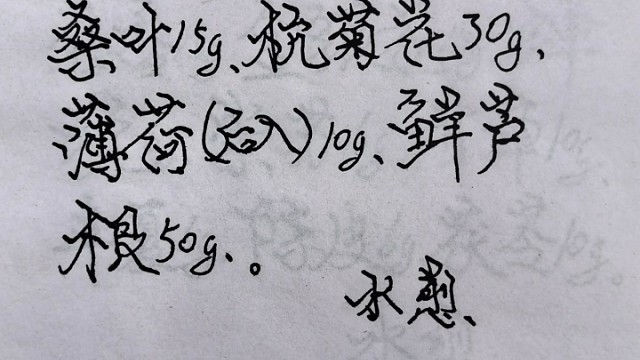 桑叶15g、杭菊花30g、
薄荷(后入)10g、鲜芦
根50g、。
水煎、